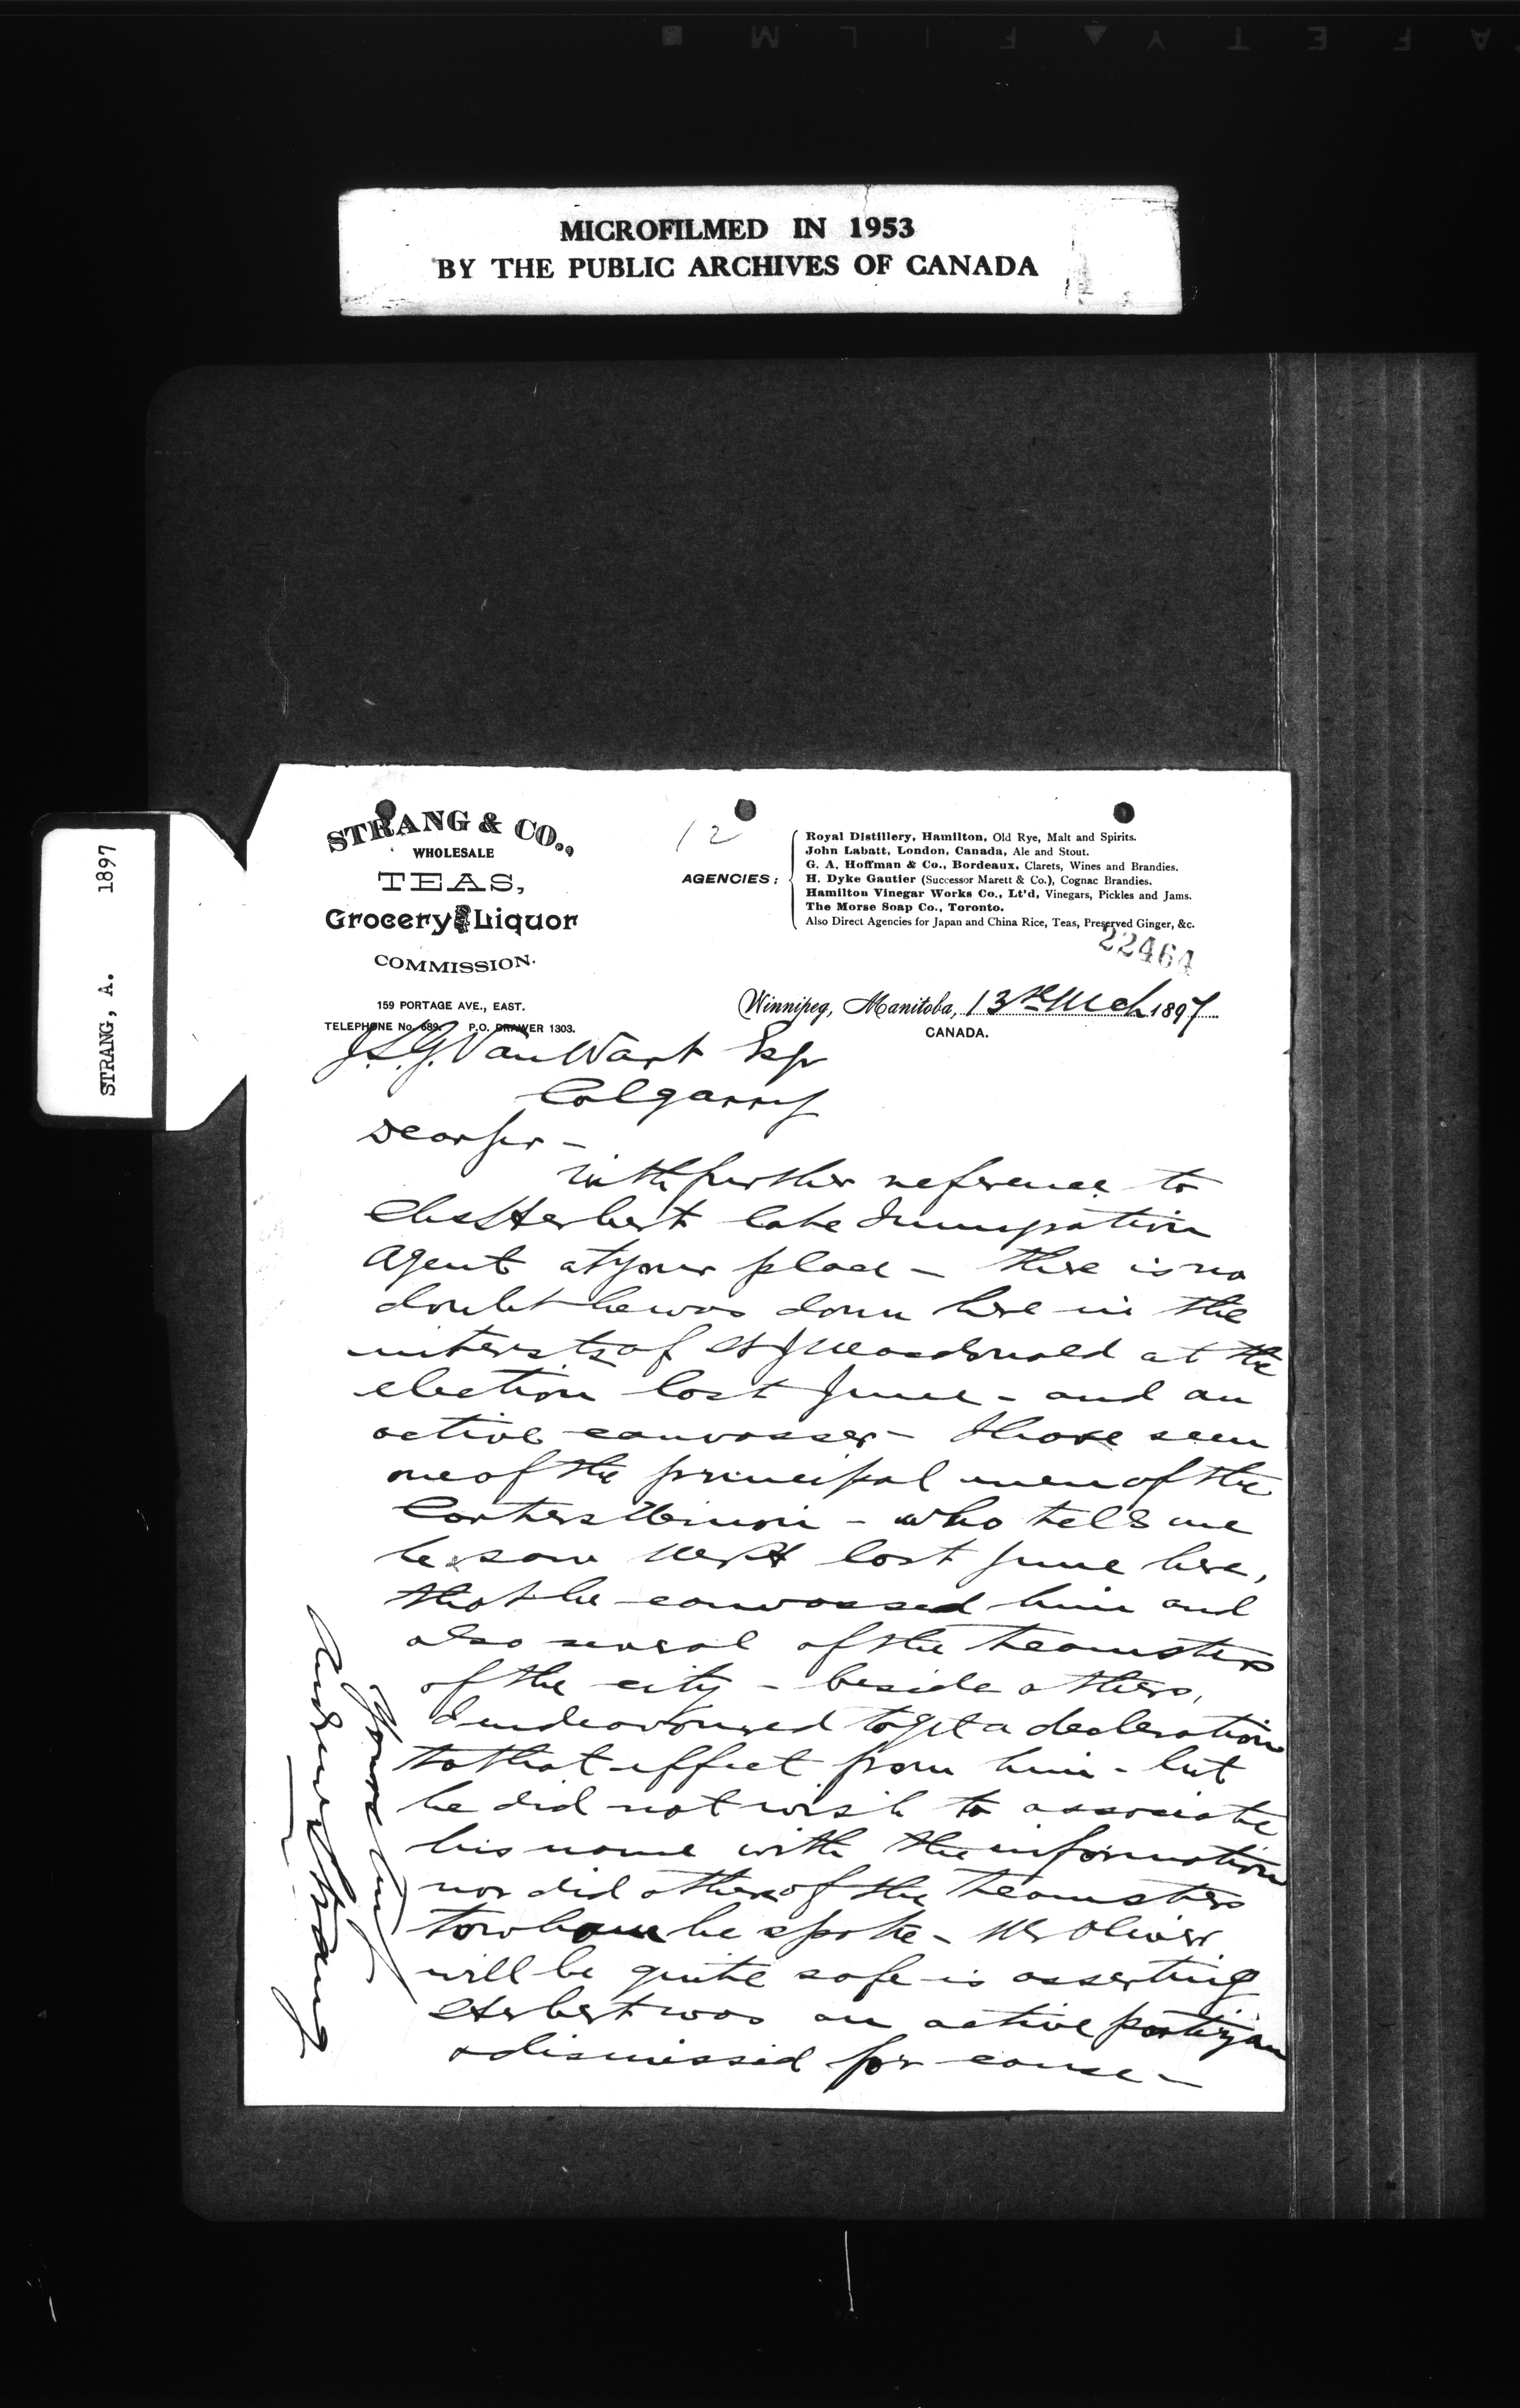 SAFETY FILM
MICROFILMED IN 1953
BY THE PUBLIC ARCHIVES OF CANADA
STRANG, A. 1897
STRANG & CO.,
WHOLESALE
TEAS,
Grocery & Liquor
COMMISSION.
159 PORTAGE AVE., EAST.
TELEPHONE No. 689. P.O. DRAWER 1303.
12
AGENCIES:
Royal Distillery, Hamilton, Old Rye, Malt and Spirits.
John Labatt, London, Canada, Ale and Stout.
G. A. Hoffman & Co., Bordeaux, Clarets, Wines and Brandies.
H. Dyke Gautier (Successor Marett & Co.), Cognac Brandies.
Hamilton Vinegar Works Co., Lt'd, Vinegars, Pickles and Jams.
The Morse Soap Co., Toronto.
Also Direct Agencies for Japan and China Rice, Teas, Preserved Ginger, &c.
22464
Winnipeg, Manitoba, 13th Mch 1897
CANADA.
J.L.G. Van Wart Esqr
Calgarry
Dear Sir –
With further reference to
Herbert late Immigration
Agent at your place – there is no
doubt he was down here in the
interests of H J Macdonald at the
election last June – and an
active canvasser – I have seen
one of the principal men of the
Carters Union – who tells me
he saw Mr H last June here,
that he canvassed him and
also several of the teamsters
of the city – beside others,
I endeavoured to get a declaration
to that effect from him – but
he did not wish to associate
his name with the information
nor did others of the teamsters
to whom he spoke – Mr Oliver
will be quite safe in asserting
Herbert was an active partizan
& dismissed for cause –
Yours truly
Andrew Strang